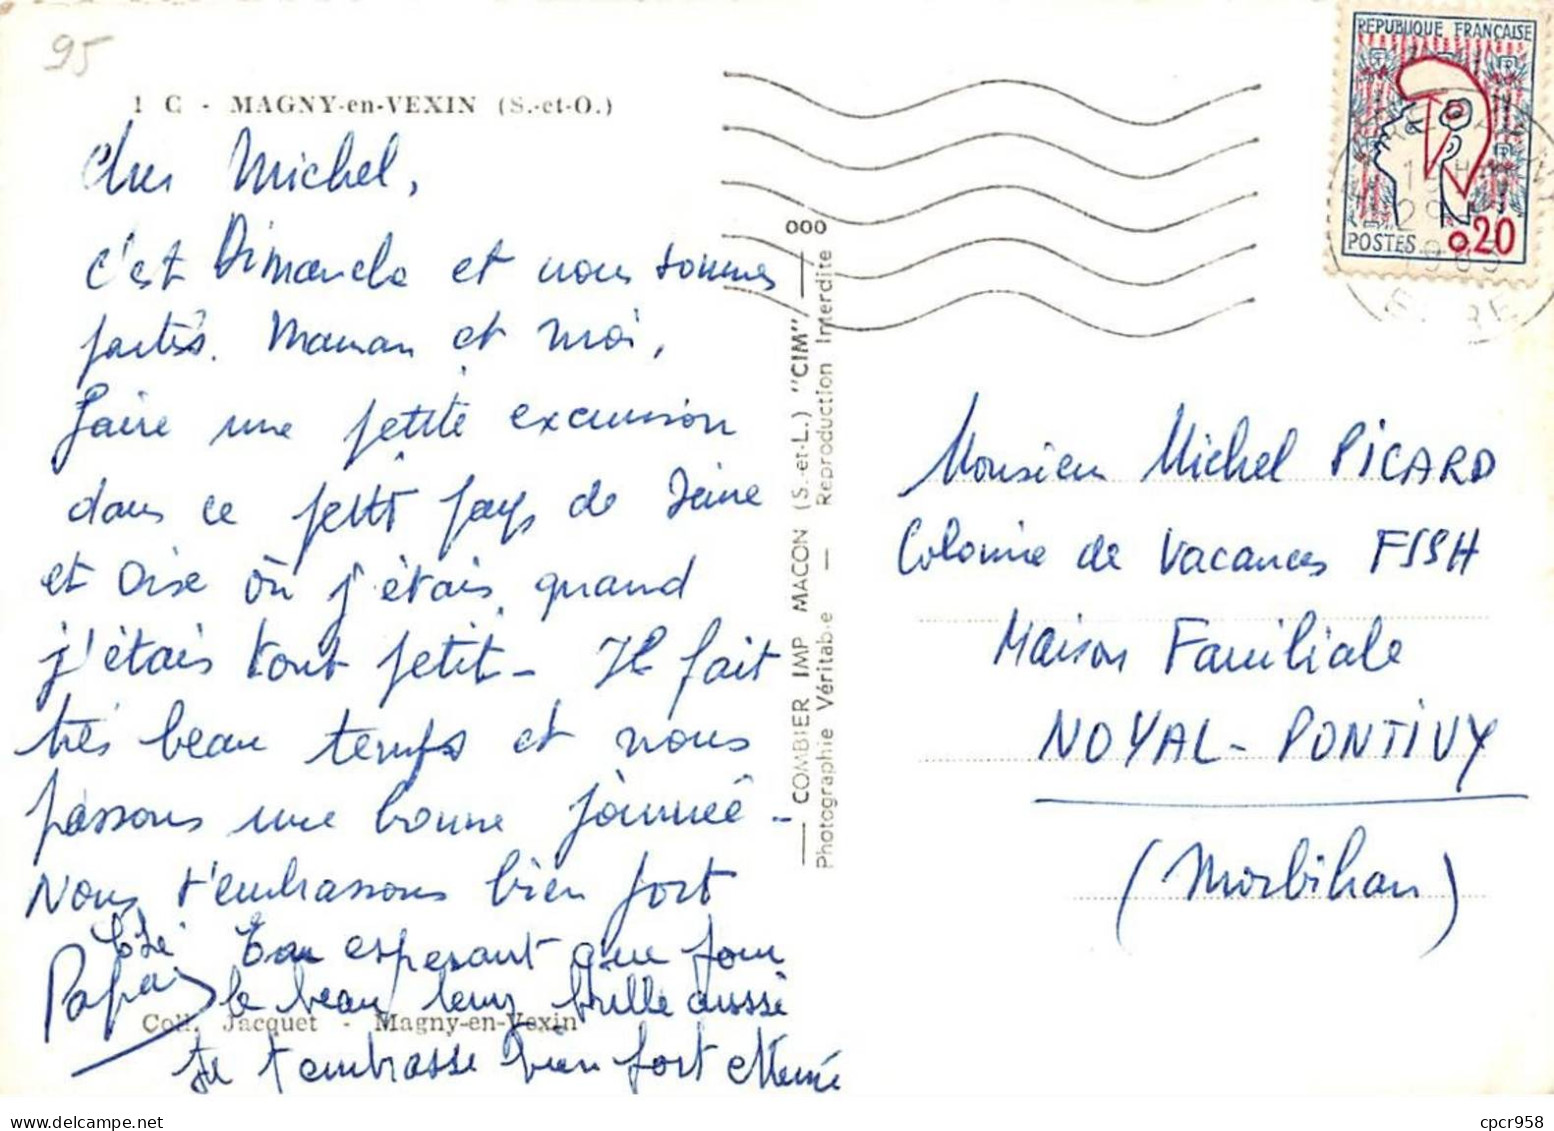 95
1 C - MAGNY-en-VEXIN (S.-et-O.)
Cher Michel,
c'est Dimanche et nous sommes
partis. Maman et moi,
faire une petite excursion
dans ce petit pays de Seine
et Oise où j'étais quand
j'étais tout petit - Il fait
très beau temps et nous
passons une bonne journée -
Nous t'embrassons bien fort
Papa
En esperant que pour
le beau temps brille aussi
Je t'embrasse bien fort Mémé
Coll. Jacquet - Magny-en-Vexin
COMBIER IMP MACON (S.-et-L.) "CIM"
Photographie Véritable — Reproduction Interdite
000
REPUBLIQUE FRANÇAISE
POSTES 0.20
Monsieur Michel PICARD
Colonie de Vacances FSSH
Maison Familiale
NOYAL-PONTIVY
(Morbihan)
cpcr958